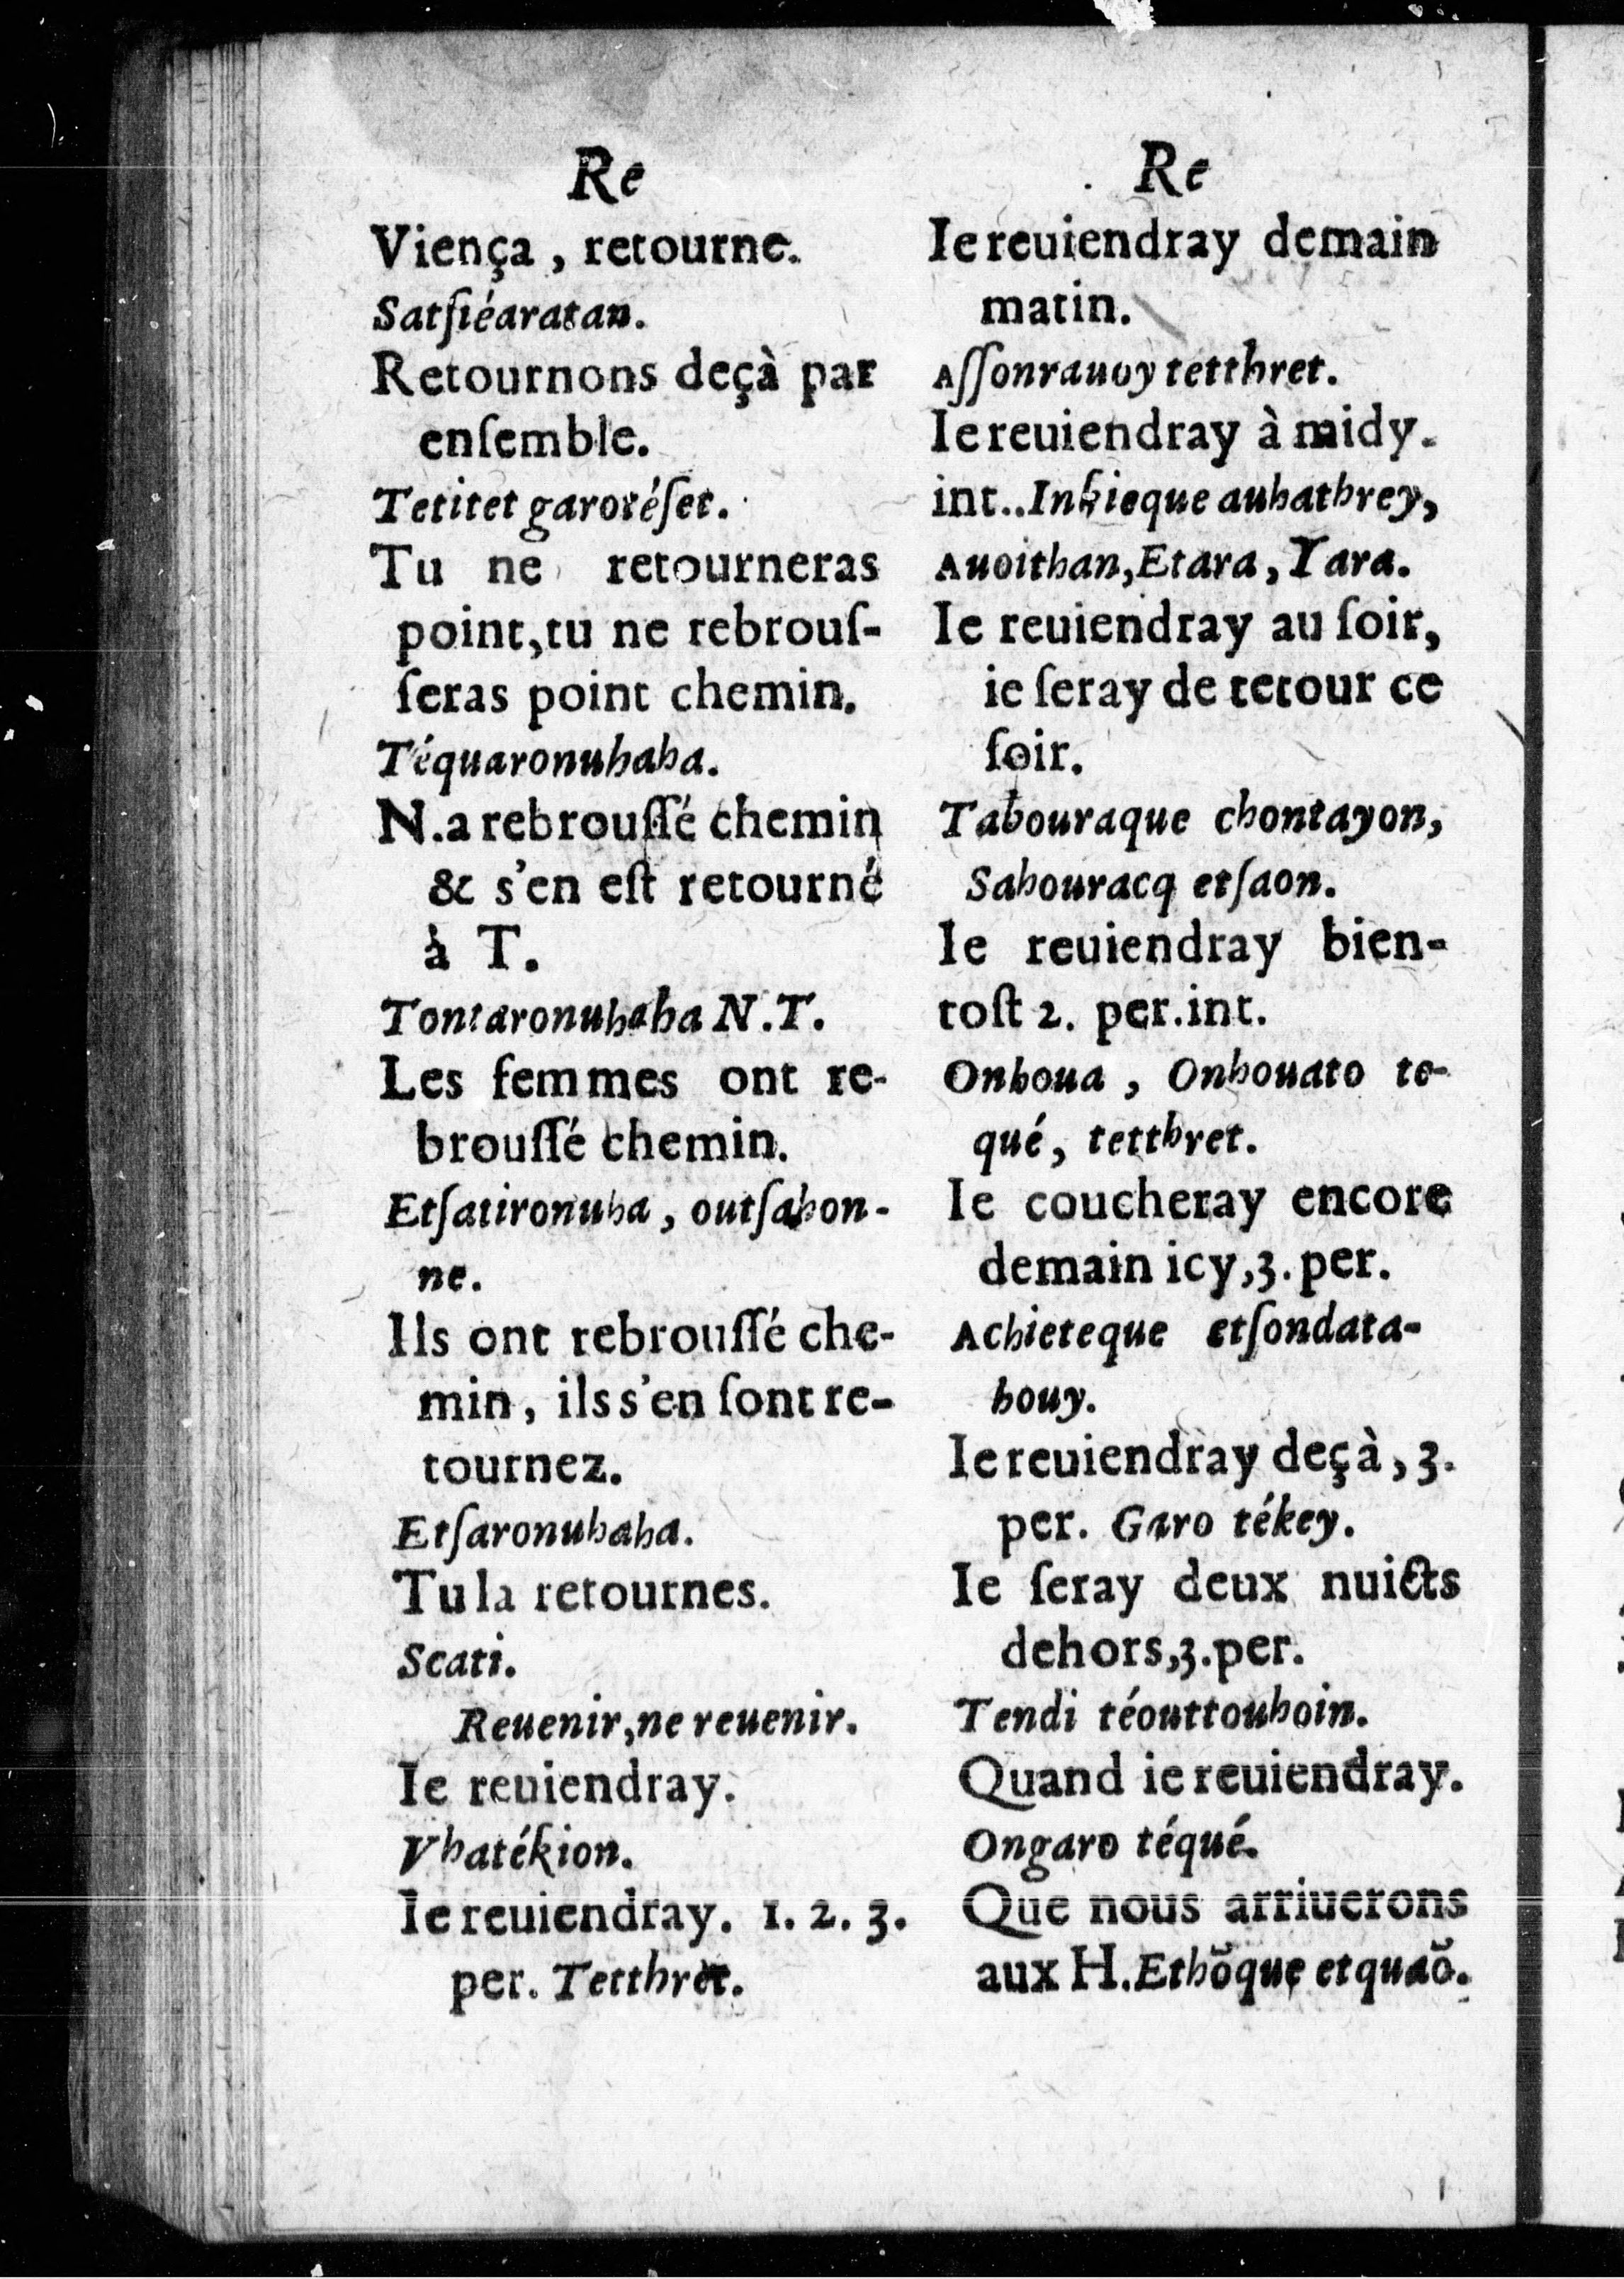 Re
Viença, retourne.
Satſiéaratan.
Retournons deçà par
enſemble.
Tetitet garotéſet.
Tu ne retourneras
point, tu ne rebrouſ-
ſeras point chemin.
Téquaronuhaha.
N. a rebrouſſé chemin
& s'en eſt retourné
à T.
Tontaronuhaha N.T.
Les femmes ont re-
brouſſé chemin.
Etſatironuha, outſahon-
ne.
Ils ont rebrouſſé che-
min, ils s'en ſont re-
tournez.
Etſaronuhaha.
Tu la retournes.
Scati.
Reuenir, ne reuenir.
Ie reuiendray.
Vhatékion.
Ie reuiendray. 1. 2. 3.
per. Tetthret.
Re
Ie reuiendray demain
matin.
Aſſonrauoy tetthret.
Ie reuiendray à midy.
int.. Inkieque auhathrey,
Auoithan, Etara, Yara.
Ie reuiendray au ſoir,
ie ſeray de retour ce
ſoir.
Tahouraque chontayon,
Sahouracq etſaon.
Ie reuiendray bien-
toſt 2. per. int.
Onhoua, Onhouato te-
qué, tetthret.
Ie coucheray encore
demain icy, 3. per.
Achieteque etſondata-
houy.
Ie reuiendray deçà, 3.
per. Garo tékey.
Ie ſeray deux nuicts
dehors, 3. per.
Tendi téouttouhoin.
Quand ie reuiendray.
Ongaro téqué.
Que nous arriuerons
aux H. Ethŏque etquaŏ.